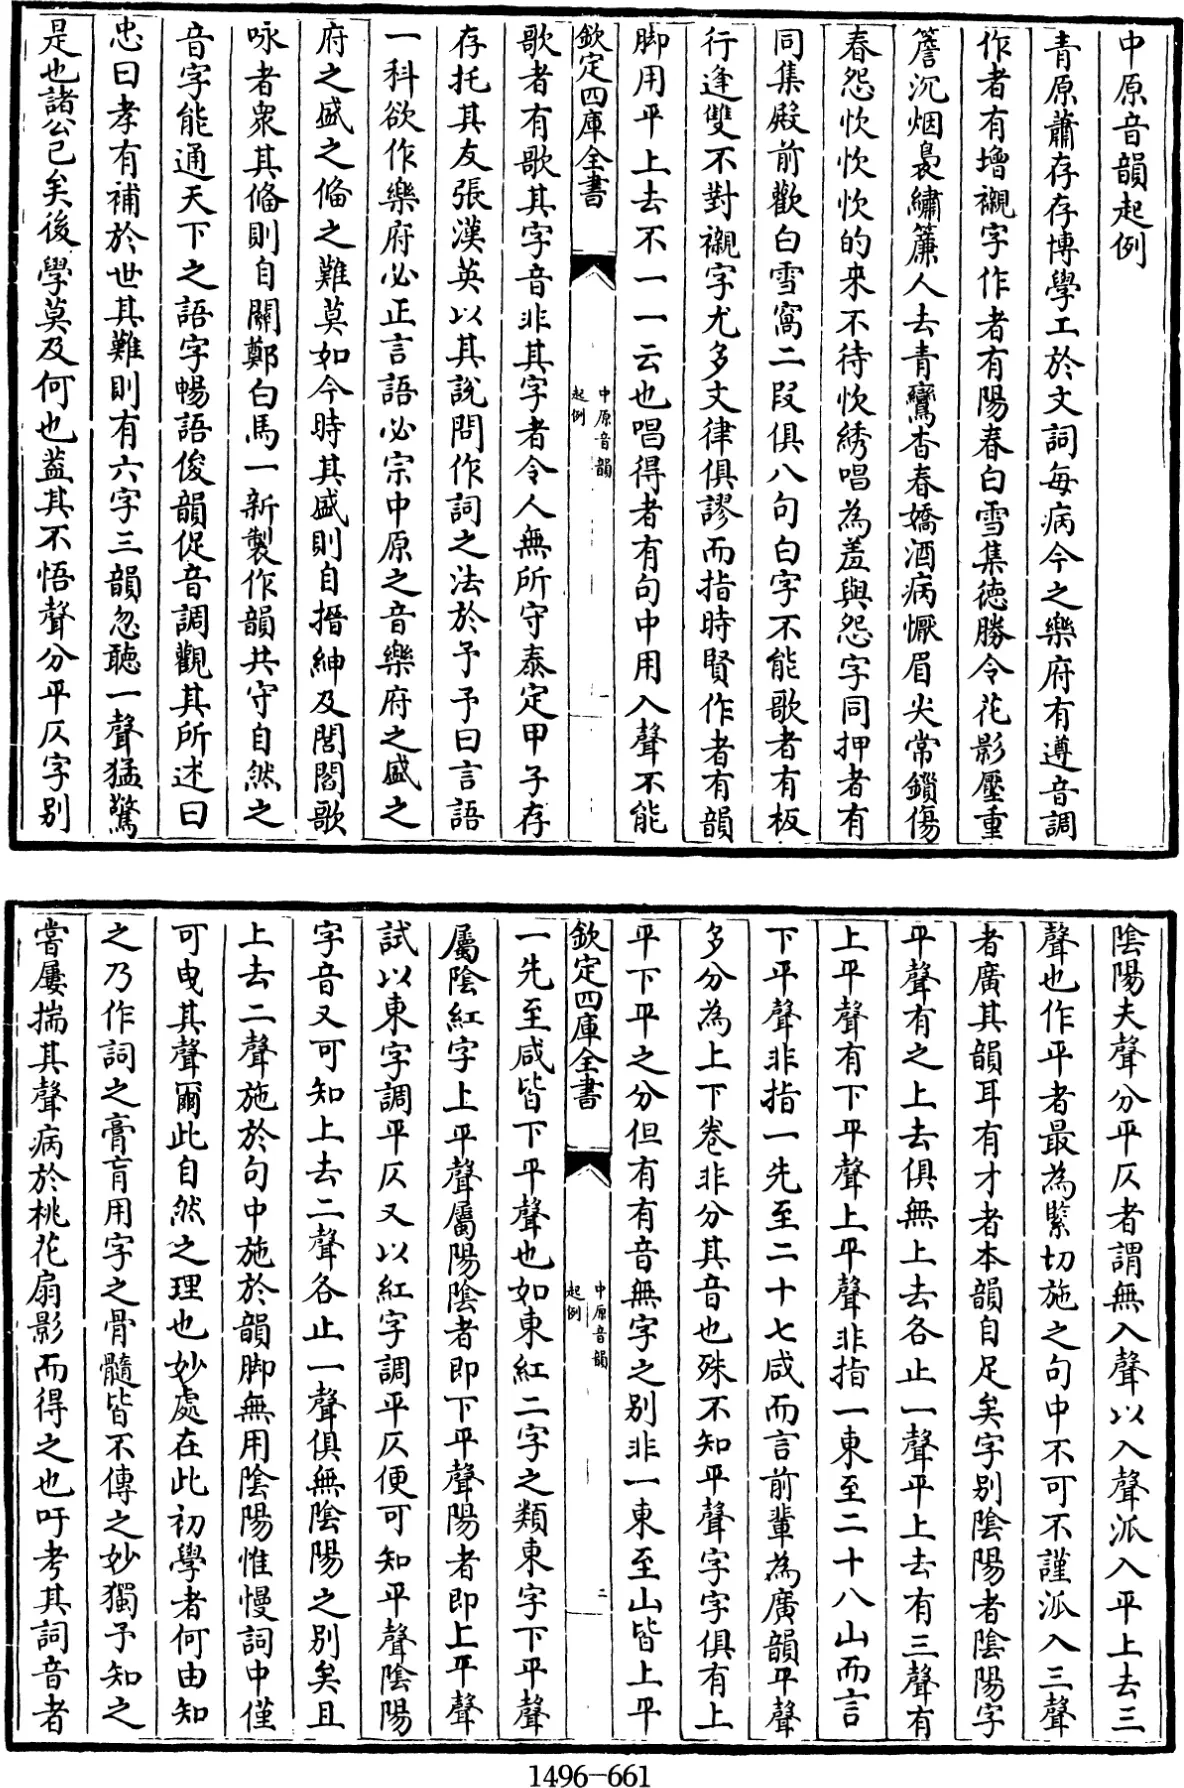 中原音韻起例
青原蕭存存博學工於文詞每病今之樂府有遵音調
作者有增襯字作者有陽春白雪集德勝令花影壓重
簷沉烟裊繡簾人去青鸞杳春嬌酒病懨眉尖常鎖傷
春怨忺忺忺的来不待忺綉唱為羞與怨字同押者有
同集殿前歡白雪窩二段俱八句白字不能歌者有板
行逢雙不對襯字尤多文律俱謬而指時賢作者有韻
脚用平上去不一一云也唱得者有句中用入聲不能
欽定四庫全書
中原音韻
起例
一
歌者有歌其字音非其字者令人無所守泰定甲子存
存托其友張漢英以其說問作詞之法於予予曰言語
一科欲作樂府必正言語必宗中原之音樂府之盛之
府之盛之俻之難莫如今時其盛則自搢紳及閭閻歌
咏者衆其俻則自關鄭白馬一新製作韻共守自然之
音字能通天下之語字暢語俊韻促音調觀其所述曰
忠曰孝有補於世其難則有六字三韻忽聽一聲猛驚
是也諸公已矣後學莫及何也葢其不悟聲分平仄字別
陰陽夫聲分平仄者謂無入聲以入聲派入平上去三
聲也作平者最為緊切施之句中不可不謹派入三聲
者廣其韻耳有才者本韻自足矣字別陰陽者陰陽字
平聲有之上去俱無上去各止一聲平上去有三聲有
上平聲有下平聲上平聲非指一東至二十八山而言
下平聲非指一先至二十七咸而言前輩為廣韻平聲
多分為上下卷非分其音也殊不知平聲字字俱有上
平下平之分但有有音無字之別非一東至山皆上平
欽定四庫全書
中原音韻
起例
二
一先至咸皆下平聲也如東紅二字之類東字下平聲
屬陰紅字上平聲屬陽陰者即下平聲陽者即上平聲
試以東字調平仄又以紅字調平仄便可知平聲陰陽
字音又可知上去二聲各止一聲俱無陰陽之別矣且
上去二聲施於句中施於韻脚無用陰陽惟慢詞中僅
可曳其聲爾此自然之理也妙處在此初學者何由知
之乃作詞之膏肓用字之骨髓皆不傳之妙獨予知之
嘗屢揣其聲病於桃花扇影而得之也吁考其詞音者
1496-661